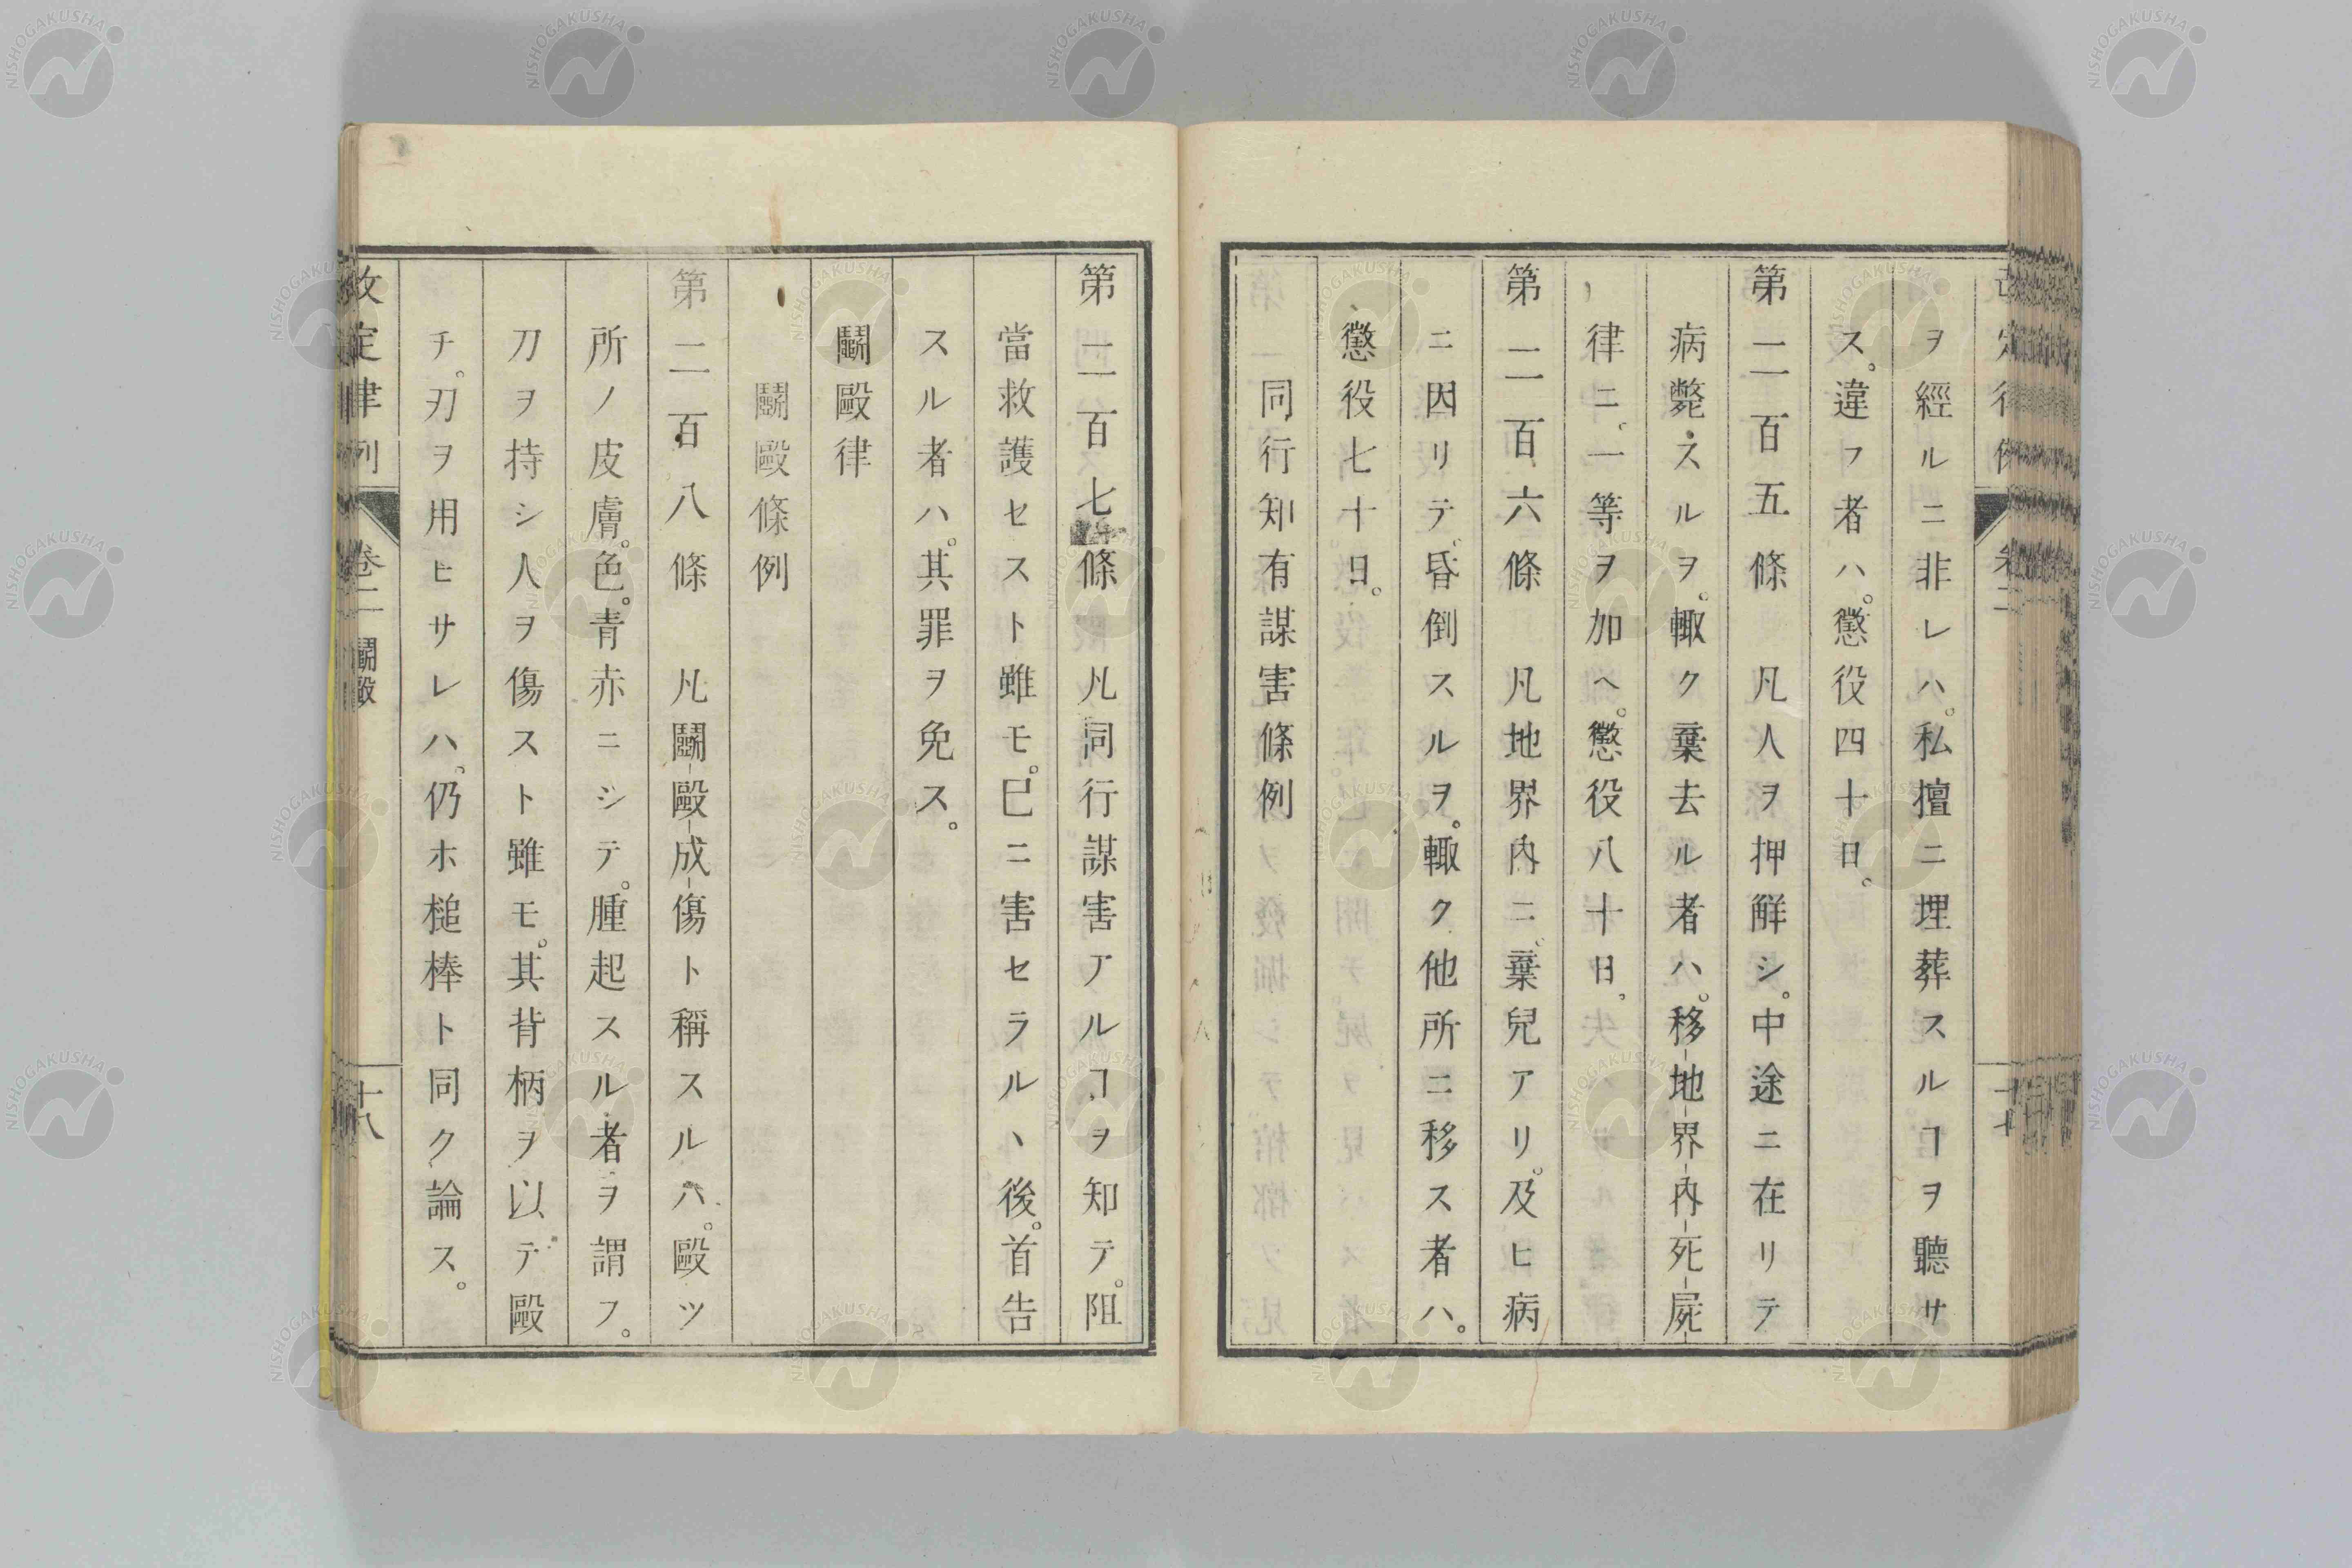 ヲ經ルニ非レハ。私擅ニ埋葬スルヿヲ聽サ
ス。違フ者ハ。懲役四十日。
第二百五條　凡人ヲ押解シ。中途ニ在リテ
病斃スルヲ。輙ク棄去ル者ハ。移地界内死屍
律ニ。一等ヲ加ヘ。懲役八十日。
第二百六條　凡地界内ニ。棄兒アリ。及ヒ病
ニ因リテ。昏倒スルヲ。輙ク他所ニ移ス者ハ。
懲役七十日。
同行知有謀害條例
第二百七條　凡同行謀害アルヿヲ知テ。阻
當救護セスト雖モ。已ニ害セラルヽ後。首告
スル者ハ。其罪ヲ免ス。
鬭毆律
鬭毆條例
第二百八條　凡鬭毆成傷ト稱スルハ。毆ツ
所ノ皮膚。色。青赤ニシテ。腫起スル者ヲ謂フ。
刀ヲ持シ人ヲ傷スト雖モ。其背柄ヲ以テ毆
チ。刃ヲ用ヒサレハ。仍ホ槌棒ト同ク論ス。
改定律例　卷二　鬭毆　十八
NISHOGAKUSHA